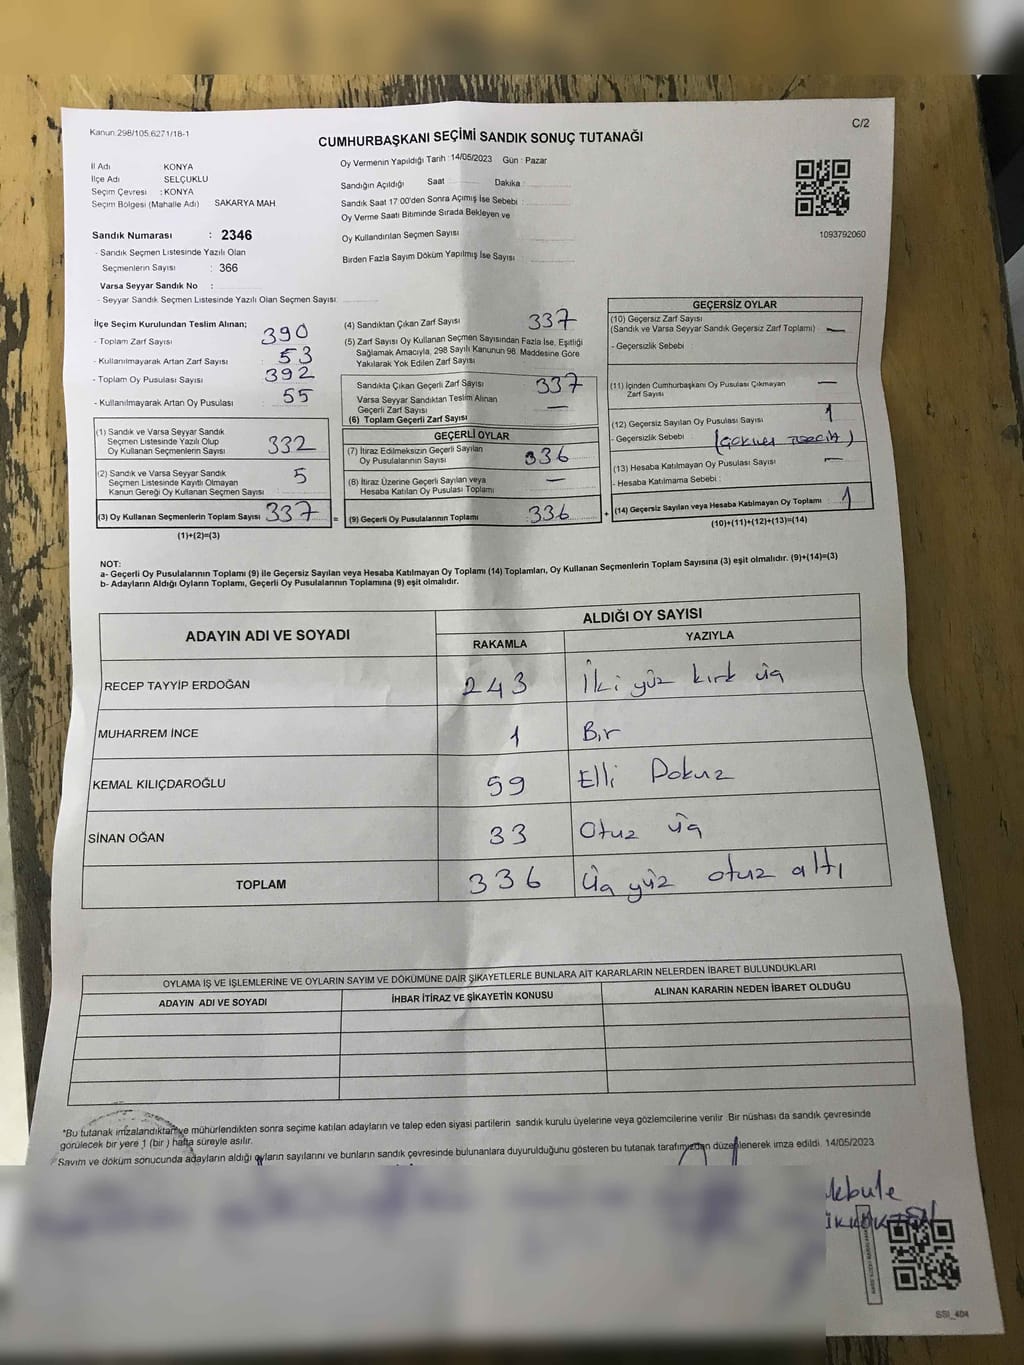 Kanun.298/105.6271/18-1
C/2
CUMHURBAŞKANI SEÇİMİ SANDIK SONUÇ TUTANAĞI
İl Adı KONYA
İlçe Adı SELÇUKLU
Seçim Çevresi : KONYA
Seçim Bölgesi (Mahalle Adı) SAKARYA MAH
Sandık Numarası : 2346
- Sandık Seçmen Listesinde Yazılı Olan
Seçmenlerin Sayısı : 366
Varsa Seyyar Sandık No :
- Seyyar Sandık Seçmen Listesinde Yazılı Olan Seçmen Sayısı:
Oy Vermenin Yapıldığı Tarih : 14/05/2023 Gün : Pazar
Sandığın Açıldığı Saat Dakika :
Sandık Saat 17.00'den Sonra Açımış İse Sebebi :
Oy Verme Saati Bitiminde Sırada Bekleyen ve
Oy Kullandırılan Seçmen Sayısı
Birden Fazla Sayım Döküm Yapılmış İse Sayısı :
1093792060
İlçe Seçim Kurulundan Teslim Alınan;
- Toplam Zarf Sayısı : 390
- Kullanılmayarak Artan Zarf Sayısı : 53
- Toplam Oy Pusulası Sayısı : 392
- Kullanılmayarak Artan Oy Pusulası : 55
(1) Sandık ve Varsa Seyyar Sandık
Seçmen Listesinde Yazılı Olup
Oy Kullanan Seçmenlerin Sayısı : 332
(2) Sandık ve Varsa Seyyar Sandık
Seçmen Listesinde Kayıtlı Olmayan
Kanun Gereği Oy Kullanan Seçmen Sayısı : 5
(3) Oy Kullanan Seçmenlerin Toplam Sayısı 337
(1)+(2)=(3)
(4) Sandıktan Çıkan Zarf Sayısı 337
(5) Zarf Sayısı Oy Kullanan Seçmen Sayısından Fazla İse, Eşitliği
Sağlamak Amacıyla, 298 Sayılı Kanunun 98. Maddesine Göre
Yakılarak Yok Edilen Zarf Sayısı
Sandıkta Çıkan Geçerli Zarf Sayısı 337
Varsa Seyyar Sandıktan Teslim Alınan
Geçerli Zarf Sayısı —
(6) Toplam Geçerli Zarf Sayısı
GEÇERLİ OYLAR
(7) İtiraz Edilmeksizin Geçerli Sayılan
Oy Pusulalarının Sayısı 336
(8) İtiraz Üzerine Geçerli Sayılan veya
Hesaba Katılan Oy Pusulası Toplamı —
= (9) Geçerli Oy Pusulalarının Toplamı 336
GEÇERSİZ OYLAR
(10) Geçersiz Zarf Sayısı
(Sandık ve Varsa Seyyar Sandık Geçersiz Zarf Toplamı) —
- Geçersizlik Sebebi :
(11) İçinden Cumhurbaşkanı Oy Pusulası Çıkmayan
Zarf Sayısı —
(12) Geçersiz Sayılan Oy Pusulası Sayısı 1
- Geçersizlik Sebebi
(13) Hesaba Katılmayan Oy Pusulası Sayısı —
- Hesaba Katılmama Sebebi :
+ (14) Geçersiz Sayılan veya Hesaba Katılmayan Oy Toplamı 1
(10)+(11)+(12)+(13)=(14)
NOT:
a- Geçerli Oy Pusulalarının Toplamı (9) ile Geçersiz Sayılan veya Hesaba Katılmayan Oy Toplamı (14) Toplamları, Oy Kullanan Seçmenlerin Toplam Sayısına (3) eşit olmalıdır. (9)+(14)=(3)
b- Adayların Aldığı Oyların Toplamı, Geçerli Oy Pusulalarının Toplamına (9) eşit olmalıdır.
ADAYIN ADI VE SOYADI ALDIĞI OY SAYISI
RAKAMLA YAZIYLA
RECEP TAYYİP ERDOĞAN 243 İki yüz kırk üç
MUHARREM İNCE 1 Bir
KEMAL KILIÇDAROĞLU 59 Elli Dokuz
SİNAN OĞAN 33 Otuz üç
TOPLAM 336 Üç yüz otuz altı
OYLAMA İŞ VE İŞLEMLERİNE VE OYLARIN SAYIM VE DÖKÜMÜNE DAİR ŞİKAYETLERLE BUNLARA AİT KARARLARIN NELERDEN İBARET BULUNDUKLARI
ADAYIN ADI VE SOYADI İHBAR İTİRAZ VE ŞİKAYETİN KONUSU ALINAN KARARIN NEDEN İBARET OLDUĞU
*Bu tutanak imzalandıktan ve mühürlendikten sonra seçime katılan adayların ve talep eden siyasi partilerin sandık kurulu üyelerine veya gözlemcilerine verilir. Bir nüshası da sandık çevresinde
görülecek bir yere 1 (bir) hafta süreyle asılır.
Sayım ve döküm sonucunda adayların aldığı oyların sayılarını ve bunların sandık çevresinde bulunanlara duyurulduğunu gösteren bu tutanak tarafımızdan düzenlenerek imza edildi. 14/05/2023
SSI_404